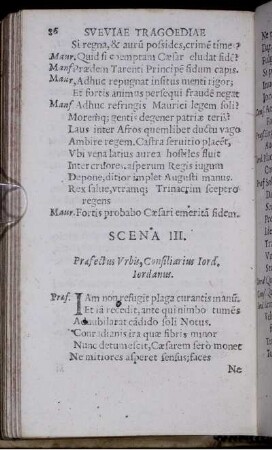 26 SVEVIAE TRAGOEDIAE
Si regna, & aurũ possides, crimẽ times?
Maur. Quid si exemptam Cæsar eludat fidẽ?
Manf Prædem Tarenti Principẽ fidum capis.
Maur, Adhuc repugnat insitus menti rigor;
Et fortis animus persequi fraudẽ negat
Manf Adhuc refringis Maurici legem soli?
Moremq; gentis degener patriæ teris?
Laus inter Afros quemlibet ductu vago
Ambire regem. Castra seruitio placẽt,
Vbi vena latius aurea hostiles fluit
Inter cruores. asperum Regis iugum
Depone, ditior implet Augusti manus.
Rex salue, vtramq; Trinacrim sceptro
regens
Maur. Fortis probabo Cæsari emeritã fidem.
SCENA III.
Præfectus Vrbis, Consiliarius Iord.
Iordanus.
Præf. IAm non refugit plaga curantis manũ.
Et ia recedit, ante qui nimbo tumẽs
Adnubilarat cãdido soli Notus.
Conradianis ira quæ fibris minor
Nunc detumescit, Cæsarem serò monet
Ne mitiores asperet sensus; faces
Ne